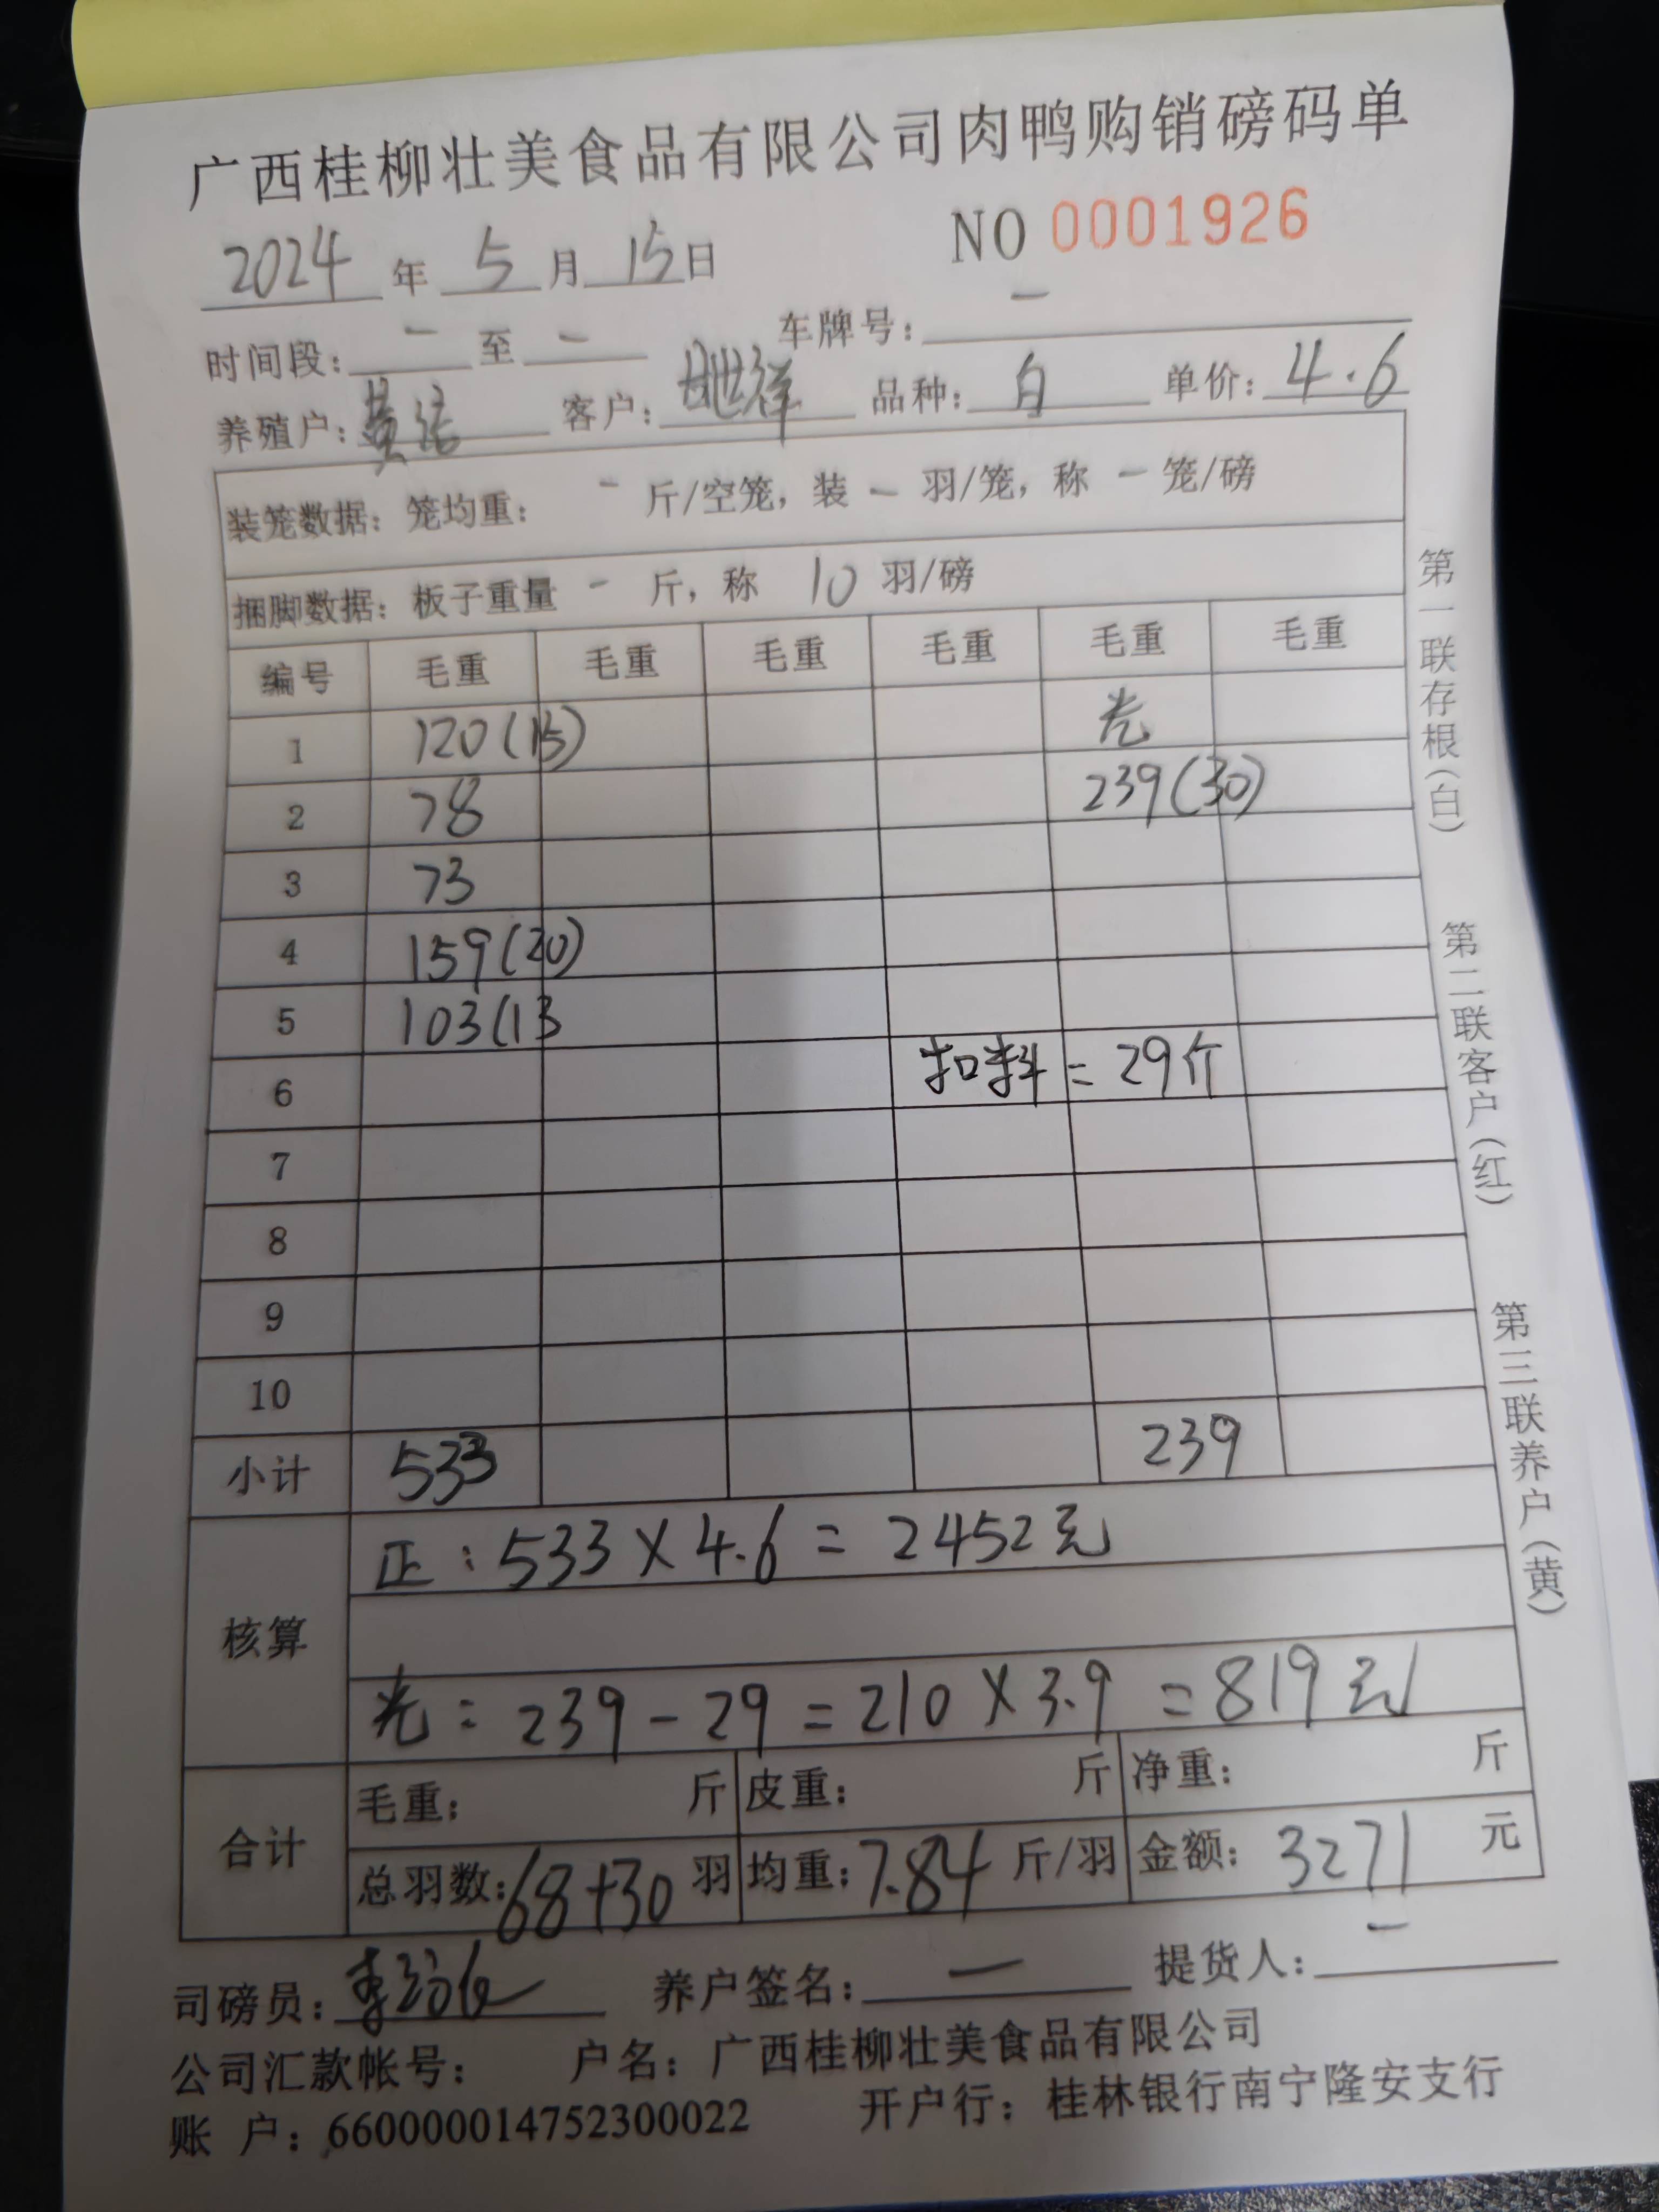 广西桂柳壮美食品有限公司肉鸭购销磅码单
2024 年 5 月 15 日 NO 0001926
时间段: - 至 - 车牌号: -
养殖户: 黄 客户: 世祥 品种: 白 单价: 4.6
装笼数据: 笼均重: - 斤/空笼, 装 - 羽/笼, 称 - 笼/磅
捆脚数据: 板子重量 - 斤, 称 10 羽/磅
编号 毛重 毛重 毛重 毛重 毛重 毛重
1 120(15) 光
2 78 239(30)
3 73
4 159(20)
5 103(13
6 扣料=29斤
7
8
9
10
小计 533 239
核算
正: 533×4.6=2452元
光: 239-29=210×3.9=819元
合计
毛重: 斤 皮重: 斤 净重: 斤
总羽数: 68+30 羽 均重: 7.84 斤/羽 金额: 3271 元
司磅员: 养户签名: - 提货人: -
公司汇款帐号: 户名: 广西桂柳壮美食品有限公司
账 户: 660000014752300022 开户行: 桂林银行南宁隆安支行
第一联存根(白)
第二联客户(红)
第三联养户(黄)